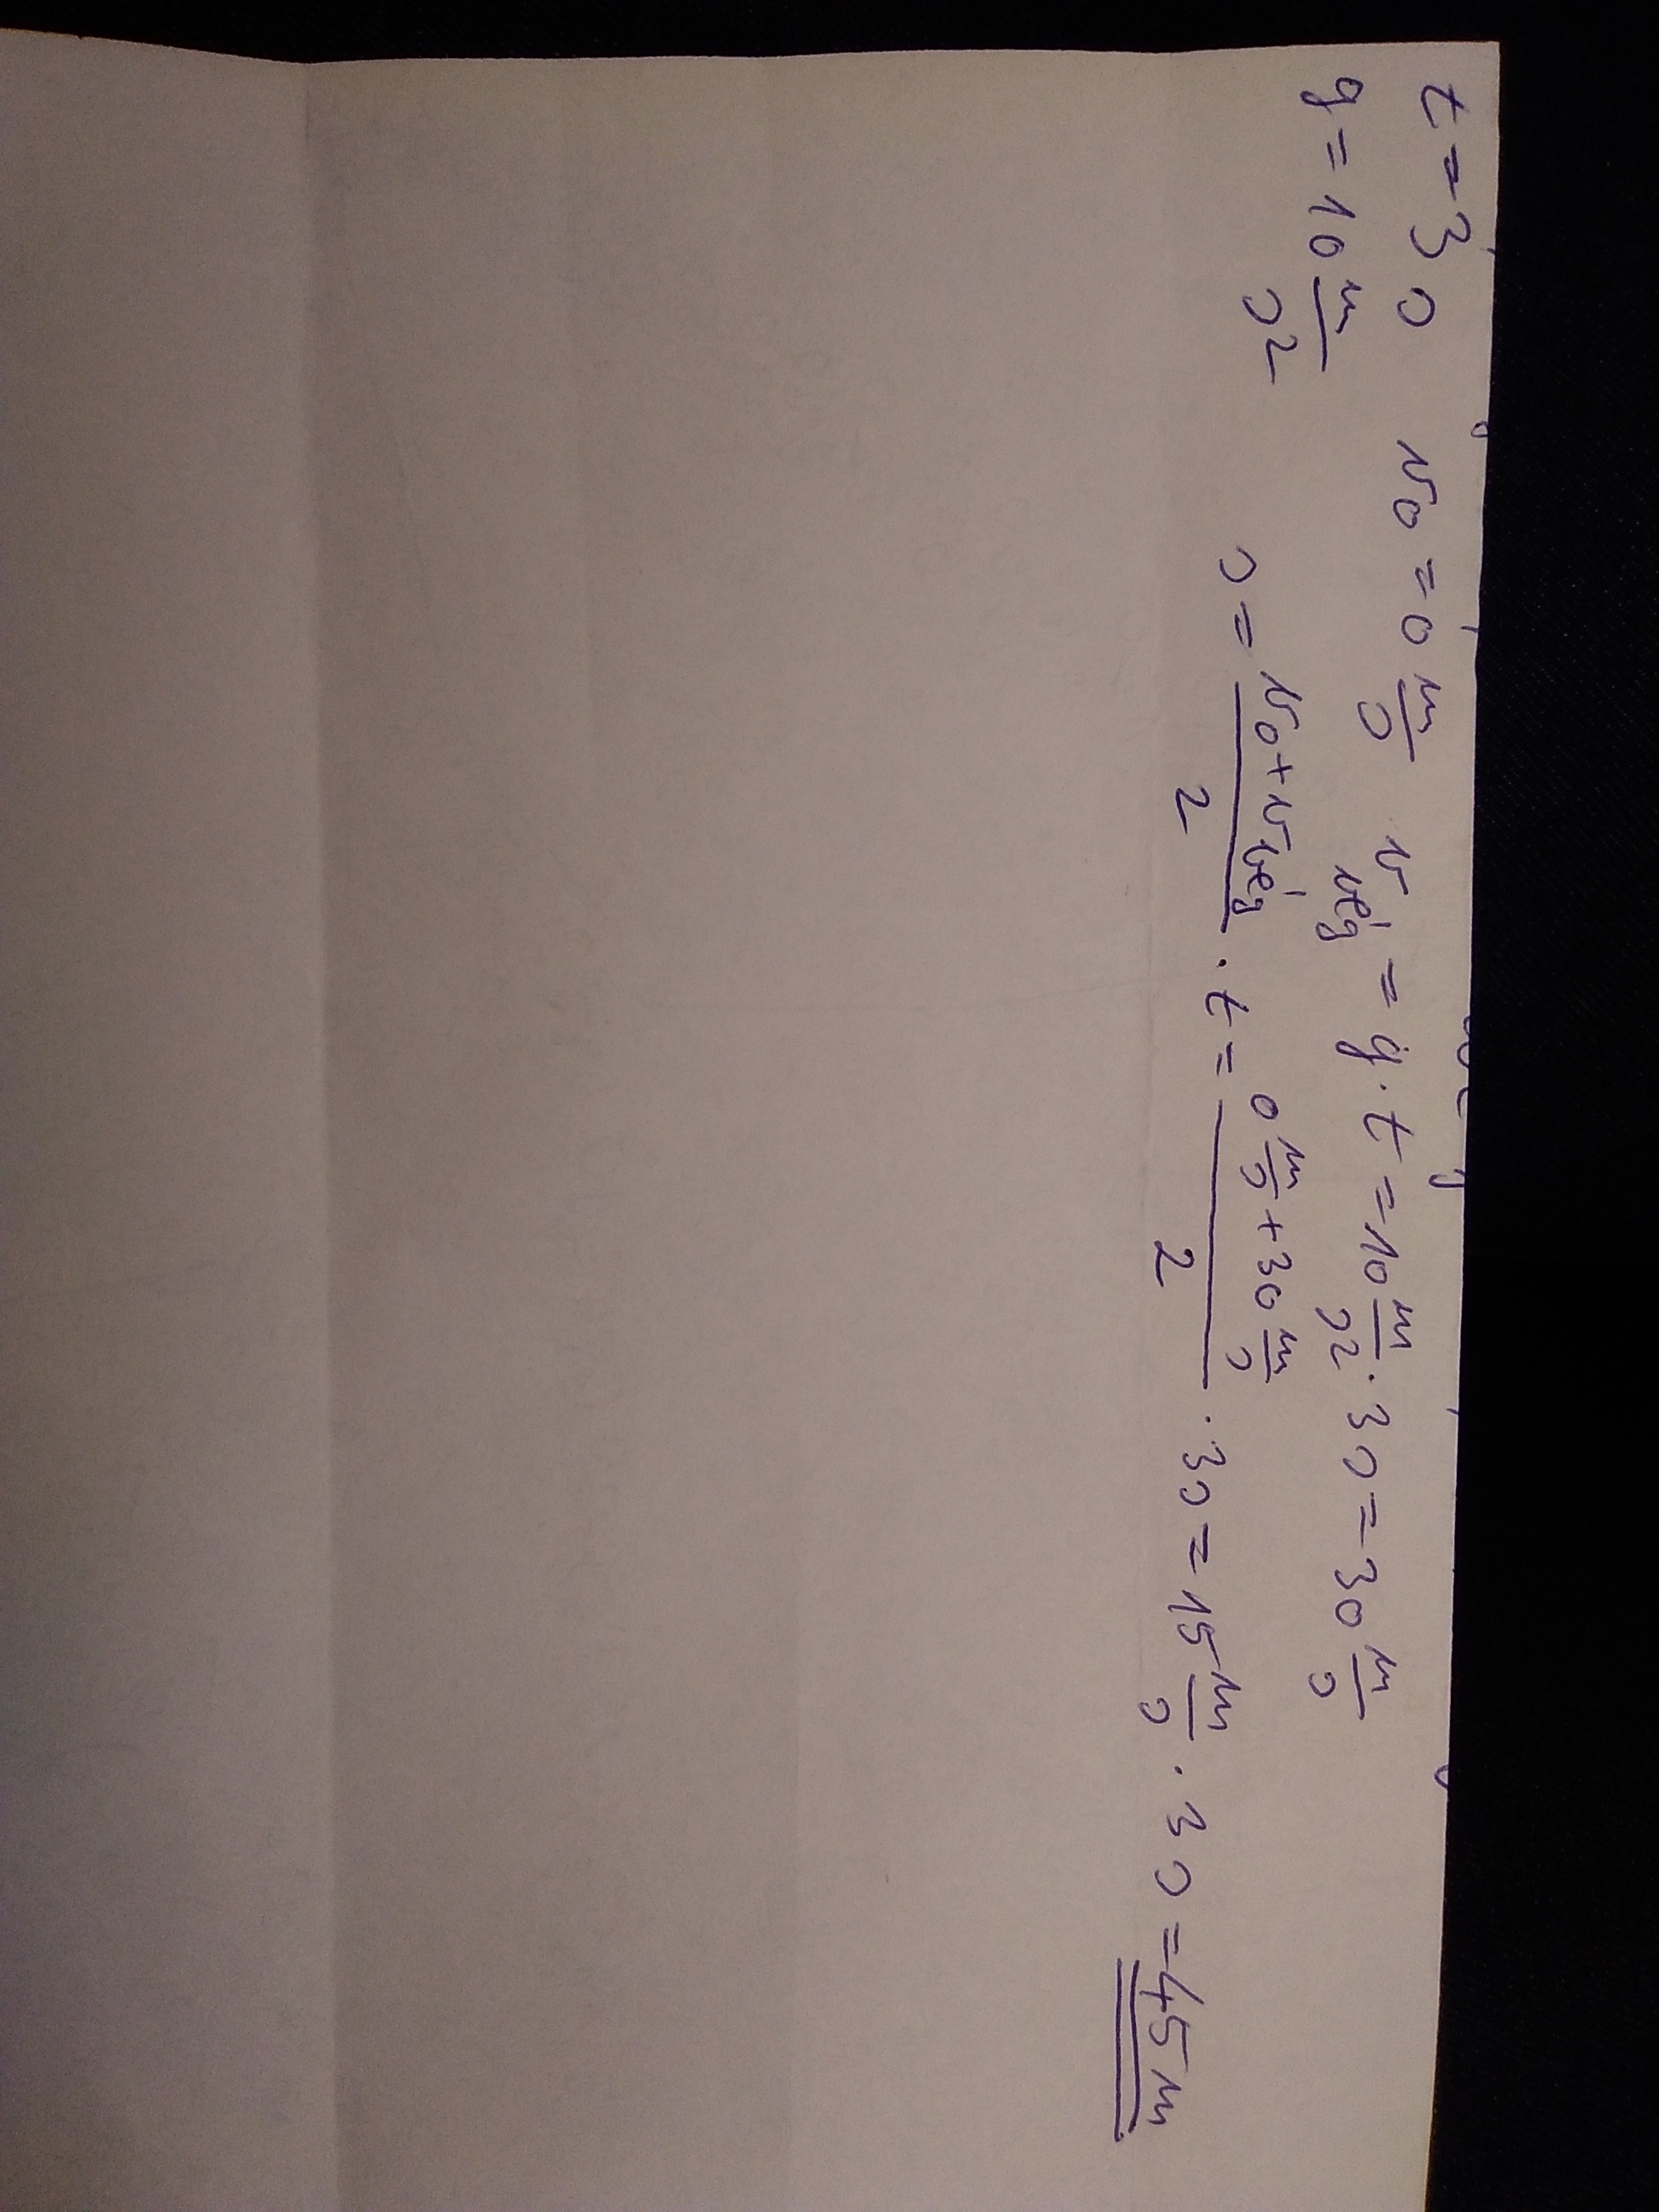 t = 3 s v₀ = 0 m/s v vég = g · t = 10 m/s² · 3 s = 30 m/s
g = 10 m/s²
s = (v₀ + v vég)/2 · t = (0 m/s + 30 m/s)/2 · 3 s = 15 m/s · 3 s = 45 m